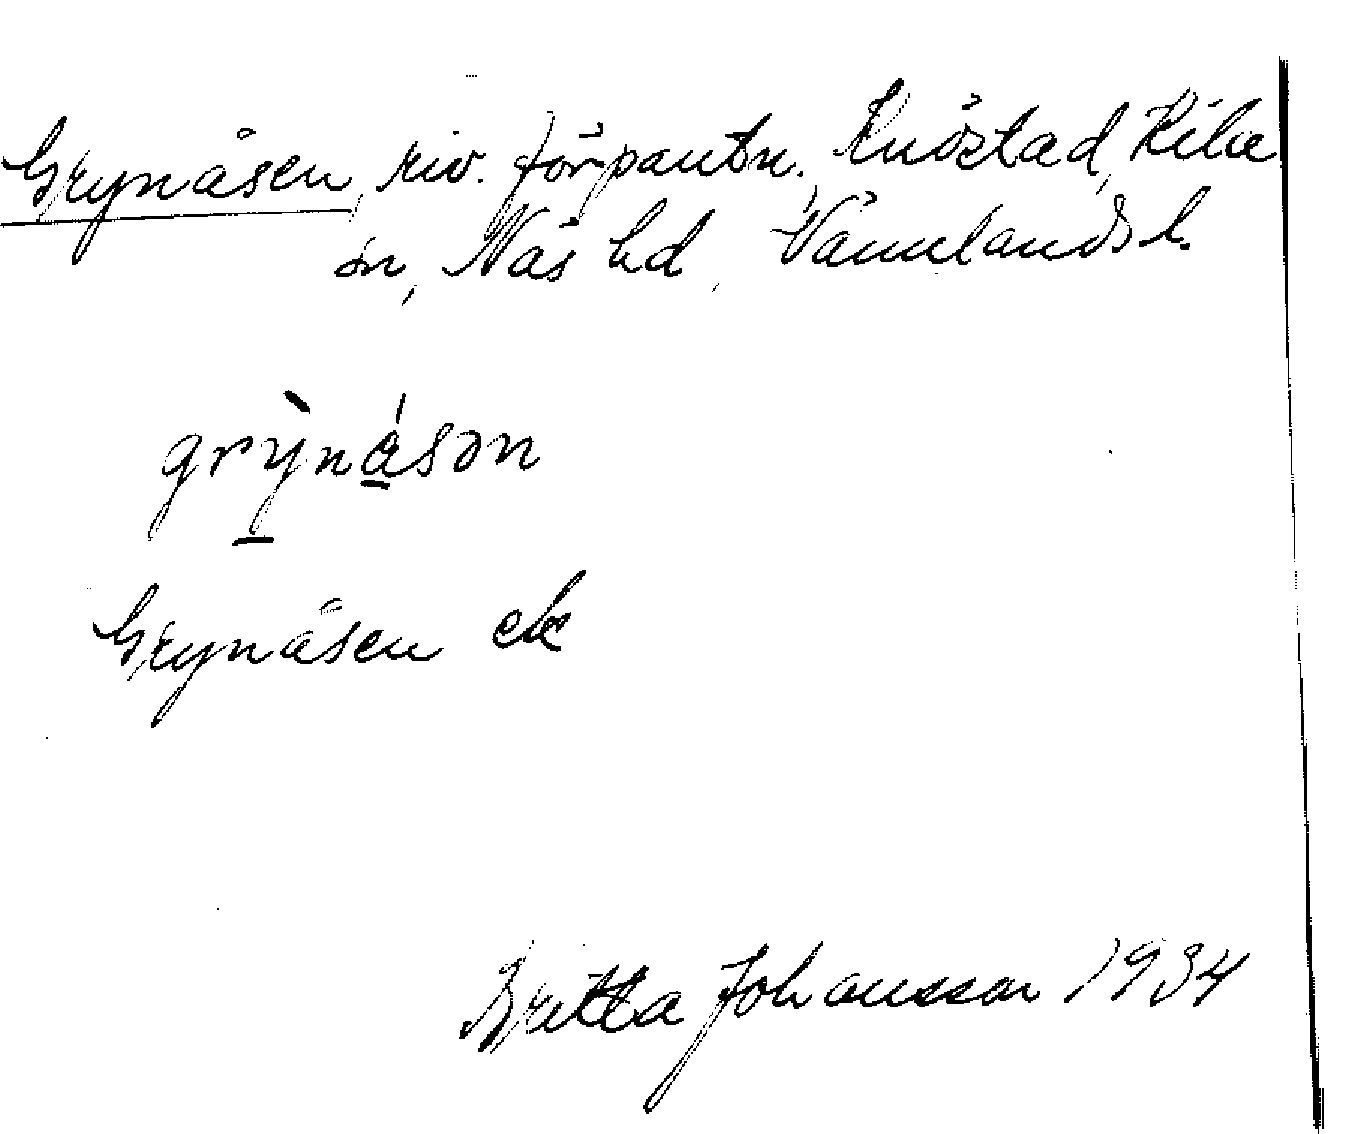 Grynåsen, riv. förpantn. Knöstad, Kila
sn, Näs hd, Värmlands l.
grỳnǻsən
Grynåsen ek
Britta Johansson 1934